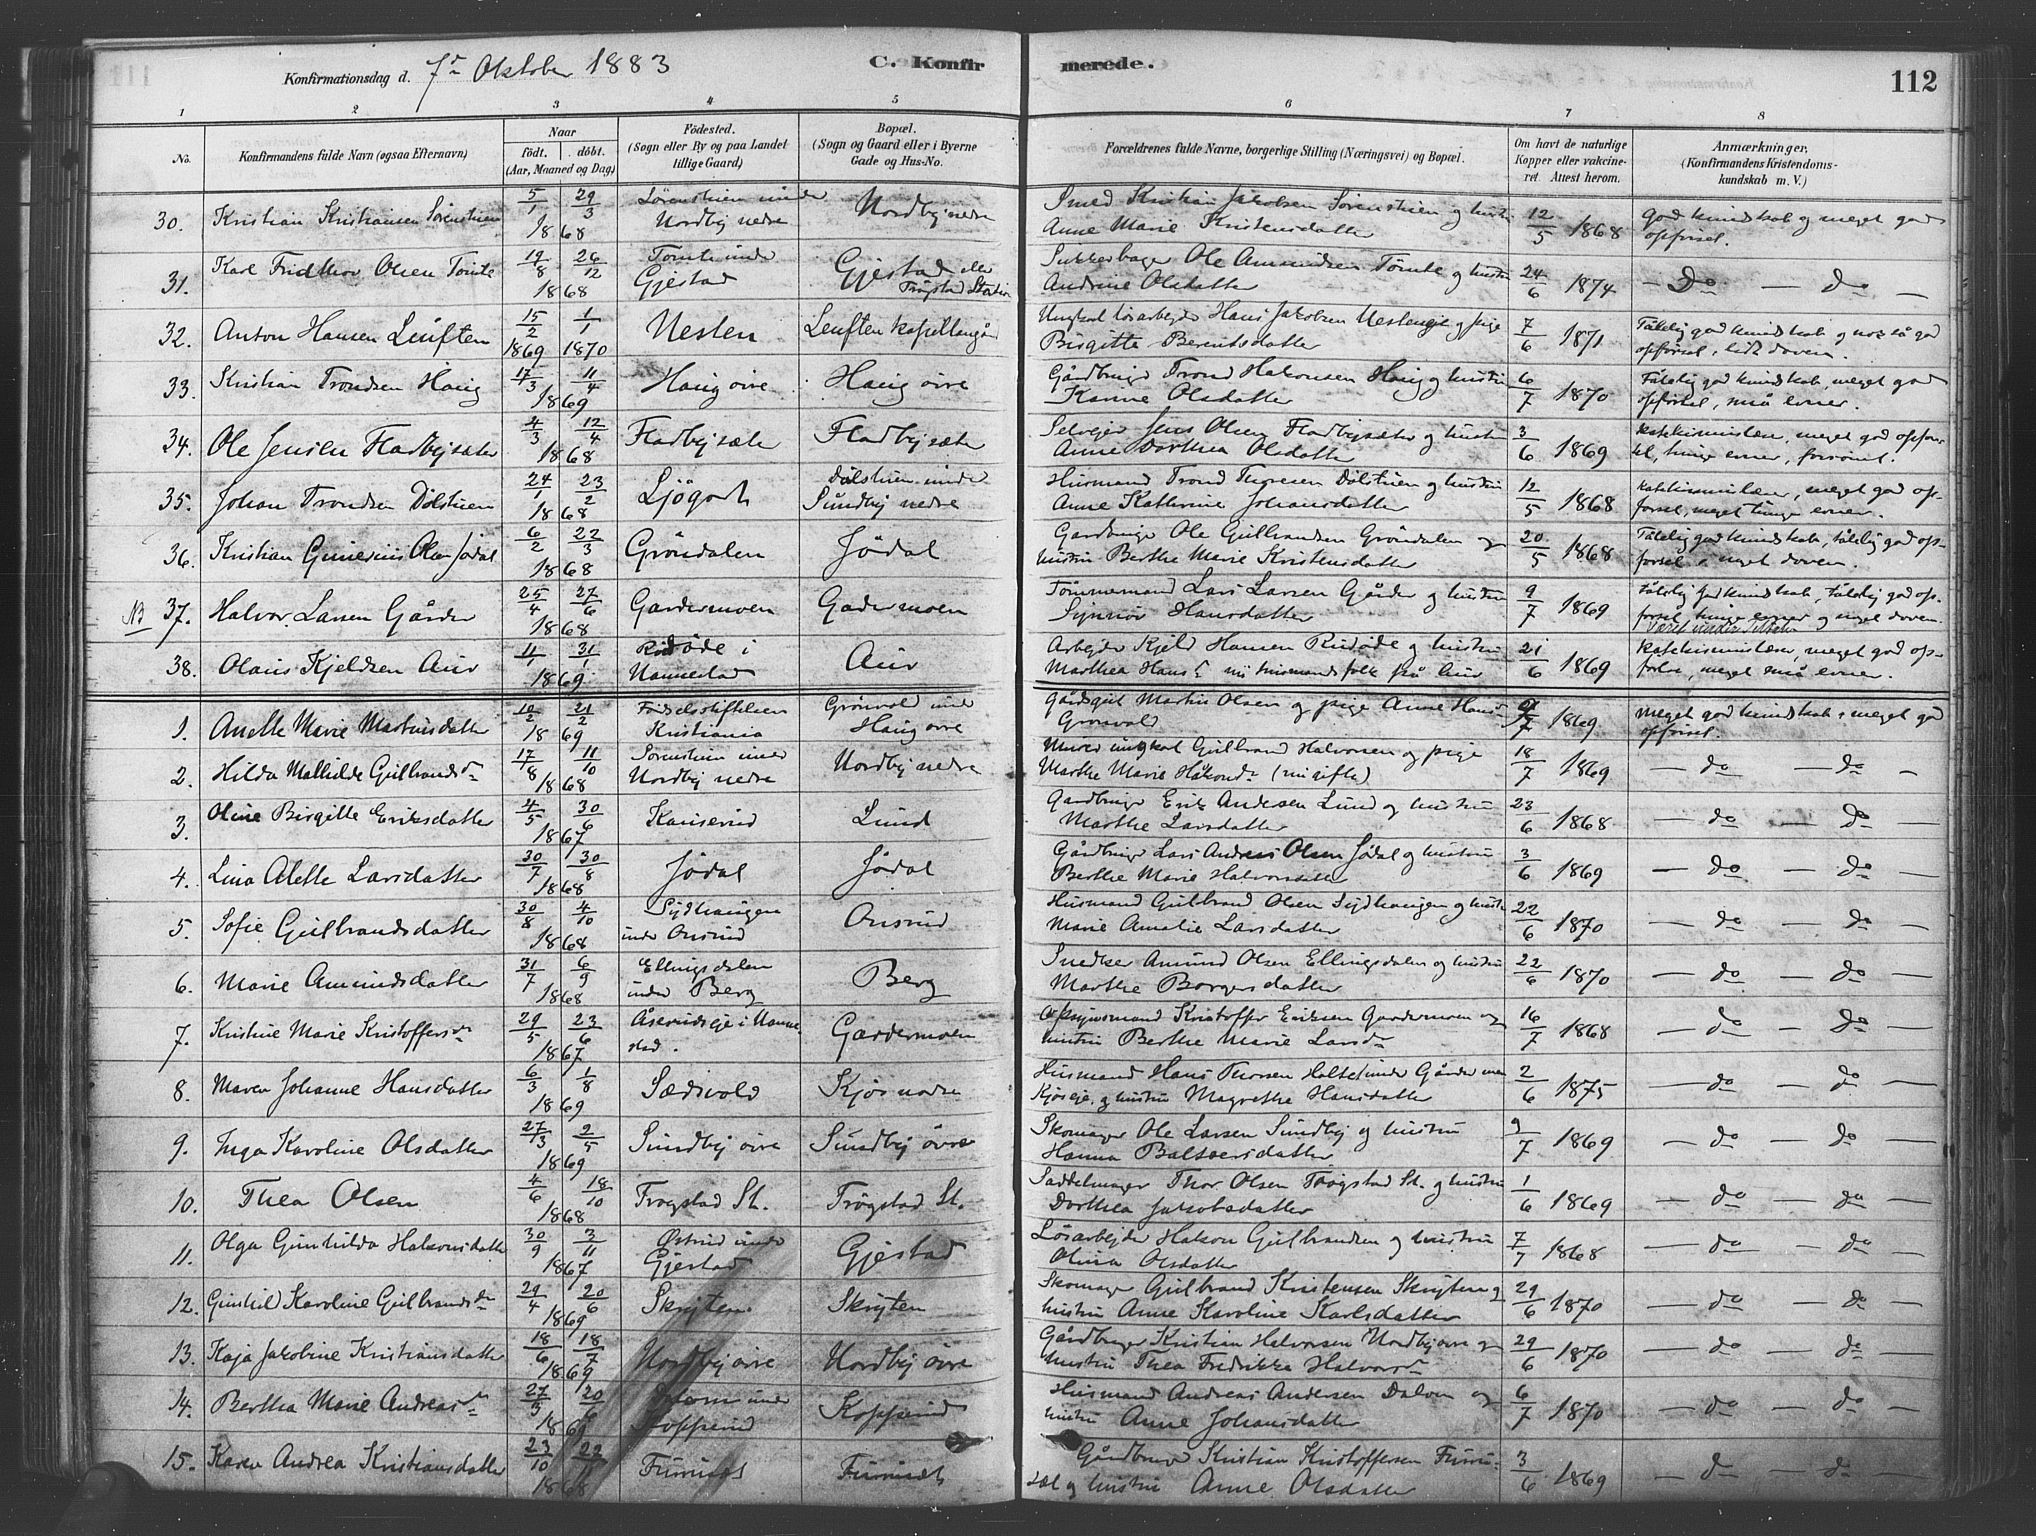 Konfirmationsdag d. 7de Oktober 1883
C. Konfirmerede.
112
1 2 3 4 5 6 7 8
No.
Konfirmandens fulde Navn (ogsaa Efternavn)
Naar
født. døbt.
(Aar, Maaned og Dag)
Fødested.
(Sogn eller By og paa Landet
tillige Gaard)
Bopæl.
(Sogn og Gaard eller i Byerne
Gade og Hus-No.
Forældrenes fulde Navne, borgerlige Stilling (Næringsvei) og Bopæl.
Om havt de naturlige
Kopper eller vakcine-
ret. Attest herom.
Anmærkninger,
(Konfirmandens Kristendoms-
kundskab m. V.)
30. Kristian Kristiansen Sørenstuen 5/1 29/3 1868 Sørenstuen under Nordby nedre Nordby nedre Smed Kristian Jakobsen Sørenstuen og hustru Anne Marie Kristensdatter 12/5 1868 God kundskab og meget god opførsel.
31. Karl Fridthov Olsen Tømte 19/8 26/12 1868 Tømte under Gjestad Gjestad eller Trøgstad Station Sukkerbager Ole Amundsen Tømte og hustru Andrine Olsdatter 24/6 1874 — Do — do —
32. Anton Hansen Leuften 15/2 1869 1/1 1870 Nesten Leuften kapellangård Ungkarl løsarbejder Hans Jakobsen og pige Birgitte Berentsdatter 7/6 1871 Tålelig god kundskab og også god opførsel, lidt doven.
33. Kristian Trondsen Haug 17/3 11/4 1869 Haug øvre Haug øvre Gårdbruger Trond Hakonsen Haug og hustru Karine Olsdatter 6/7 1870 Tålelig god kundskab, meget god opførsel, små evner.
34. Ole Jensen Fladbysæter 4/3 12/4 1868 Fladbysæter Fladbysæter Selvejer Jens Olsen Fladbysæter og hustru Anne Dorthea Olsdatter 3/6 1869 katekismuslære, meget god opførsel, tunge evner, forsømt.
35. Johan Trondsen Dølstuen 24/1 23/2 1868 Ljøgodt Dølstuen under Sundby nedre Husmand Trond Thoresen Dølstuen og hustru Anne Kathrine Johansdatter 12/5 1868 katekismuslære, meget god opførsel, meget tunge evner.
36. Kristian Gunerius Olsen Jødal 6/2 22/3 1868 Grøndalen Jødal Gardbruger Ole Gulbrandsen Grøndalen og hustru Berthe Marie Kristensdatter 20/5 1868 Tålelig god kundskab, tålelig god opførsel, meget doven.
NB 37. Halvor Larsen Gårder 25/4 27/6 1868 Gardermoen Gardermoen Tømmermand Lars Larsen Gårder og hustru Synnøv Hansdatter 9/7 1869 Tålelig god kundskab, tålelig god opførsel, tunge evner og meget doven.
38. Olaus Kjeldsen Aur 4/1 31/1 1869 Rudøde i Nannestad Aur Arbejder Kjeld Hansen Rudøde og hustru Marthea Hansd. nu husmandsfolk på Aur 21/6 1869 katekismuslære, meget god opførsel, meget små evner.
1. Anette Marie Martinsdatter 10/2 21/2 1869 Fødselsstiftelsen Kristiania Grønvold under Haug øvre Gårdsgut Martin Olsen og pige Anne Hansd. Grønvold 9/7 1869 meget god kundskab, meget god opførsel.
2. Hilda Mathilde Gulbrandsdr 17/8 11/10 1868 Sørenstuen under Nordby nedre Nordby nedre Murer ungkarl Gulbrand Halvorsen og pige Marthe Marie Håkonsdr (nu gifte) 18/7 1869 — do — do —
3. Oline Birgitte Eriksdatter 4/5 30/6 1867 Kauserud Lund Gardbruger Erik Andersen Lund og hustru Marthe Larsdatter 23/6 1868 — do — do —
4. Lina Alette Larsdatter 30/7 30/8 1868 Jødal Jødal Gårdbruger Lars Andreas Olsen Jødal og hustru Berthe Marie Halvorsdatter 3/6 1869 — do — do —
5. Sofie Gulbrandsdatter 30/8 4/10 1868 Sydhaugen under Onsrud Onsrud Husmand Gulbrand Olsen Sydhaugen og hustru Marie Amalie Larsdatter 22/6 1870 — do — do —
6. Marie Amundsdatter 31/7 6/9 1868 Ellingsdalen under Berg Berg Snedker Amund Olsen Ellingsdalen og hustru Marthe Borgersdatter 22/6 1870 — do — do —
7. Kristine Marie Kristoffersdr 29/5 23/6 1867 Åserudseje i Nannestad. Gardermoen Opsynsmand Kristoffer Eriksen Gardermoen og hustru Berthe Marie Larsdr 16/7 1868 — do — do —
8. Maren Johanne Hansdatter 6/3 1/8 1869 Sædsvold Kjøs nordre Husmand Hans Thorsen Holtet under Gårder nu Kjøseje, og hustru Magrethe Hansdatter 2/6 1875 — do — do —
9. Inga Karoline Olsdatter 27/3 2/5 1869 Sundby øvre Sundby øvre Skomager Ole Larsen Sundby og hustru Hanna Baltsersdatter 9/7 1869 — do — do —
10. Thea Olsen 4/6 18/10 1868 Trøgstad St. Trøgstad St. Saddelmager Thor Olsen Trøgstad St. og hustru Dorthea Jakobsdatter 1/6 1869 — do — do —
11. Olga Gunhilda Hakonsdatter 30/9 3/11 1867 Østrud under Gjestad Gjestad Løsarbejder Hakon Gulbrandsen og hustru Olina Olsdatter 7/7 1868 — do — do —
12. Gunhild Karoline Gulbrandsdr 29/4 20/6 1869 Skryten Skryten Skomager Gulbrand Kristensen Skryten og hustru Anne Karoline Karlsdatter 29/6 1870 — do — do
13. Kaja Jakobine Kristiansdatter 18/6 18/7 1869 Nordby øvre Nordby øvre Gårdbruger Kristian Halvorsen Nordby øvre og hustru Thea Fredrikke Halvorsdr 29/6 1870 — do — do —
14. Bertha Marie Andreasdr 27/3 20/6 1869 under Kopperud Kopperud Husmand Andreas Andersen Dalen og hustru Anne Johansdatter 6/7 1870 — do — do —
15. Karen Andrea Kristiansdatter 23/10 22/11 1868 Furuset Furuset Gårdbruger Kristian Kristoffersen Furuset og hustru Anne Olsdatter 3/6 1869 — do — do —